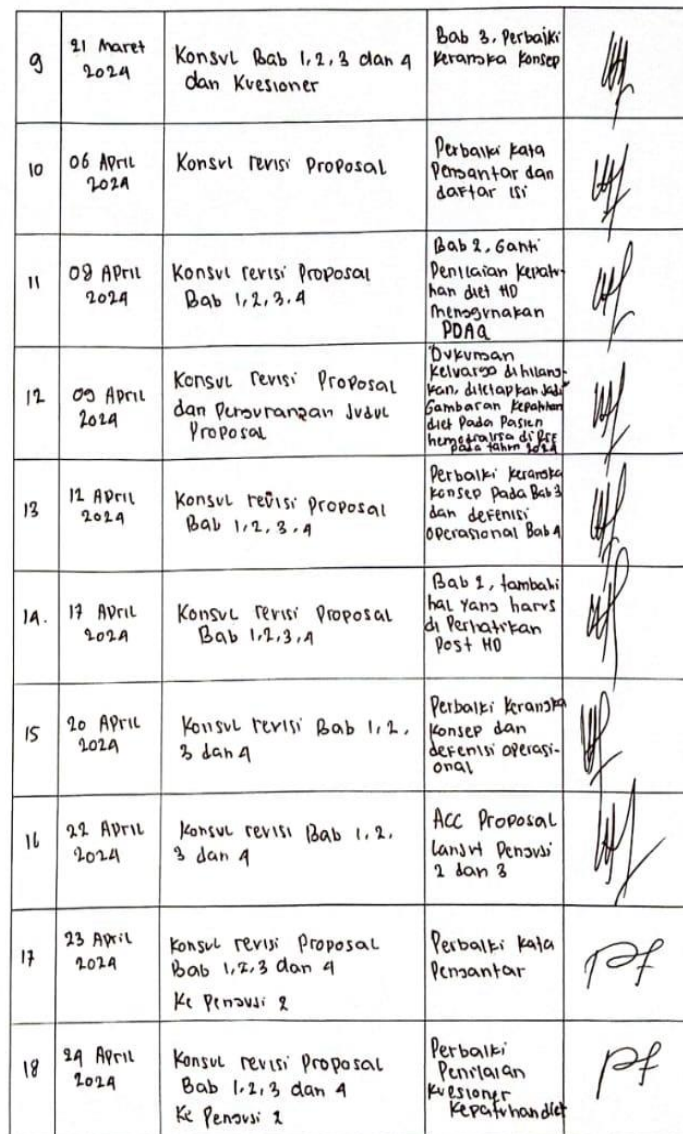 9
21 Maret
2024
Konsul Bab 1, 2, 3 dan 4
dan Kuesioner
Bab 3, Perbaiki
Kerangka Konsep
10
06 April
2024
Konsul revisi Proposal
Perbaiki kata
Pengantar dan
daftar isi
11
08 April
2024
Konsul revisi Proposal
Bab 1, 2, 3, 4
Bab 2, Ganti
Penilaian kepatu-
han diet HD
menggunakan
PDAQ
12
09 April
2024
Konsul revisi Proposal
dan Pengurangan Judul
Proposal
Dukungan
Keluarga dihilang-
kan, ditetapkan Jadi
Gambaran Kepatuhan
diet Pada Pasien
hemodialisa di RSE
pada tahun 2024
13
12 April
2024
Konsul revisi Proposal
Bab 1, 2, 3, 4
Perbaiki kerangka
konsep Pada Bab 3
dan defenisi
operasional Bab 4
14.
17 April
2024
Konsul revisi Proposal
Bab 1, 2, 3, 4
Bab 2, tambahi
hal yang harus
di Perhatikan
Post HD
15
20 April
2024
Konsul revisi Bab 1, 2,
3 dan 4
Perbaiki Kerangka
Konsep dan
defenisi operasi-
onal
16
22 April
2024
Konsul revisi Bab 1, 2,
3 dan 4
ACC Proposal
Lanjut Penguji
2 dan 3
17
23 April
2024
Konsul revisi Proposal
Bab 1, 2, 3 dan 4
Ke Penguji 2
Perbaiki Kata
Pengantar
18
24 April
2024
Konsul revisi Proposal
Bab 1, 2, 3 dan 4
Ke Penguji 2
Perbaiki
Penilaian
Kuesioner
Kepatuhan diet